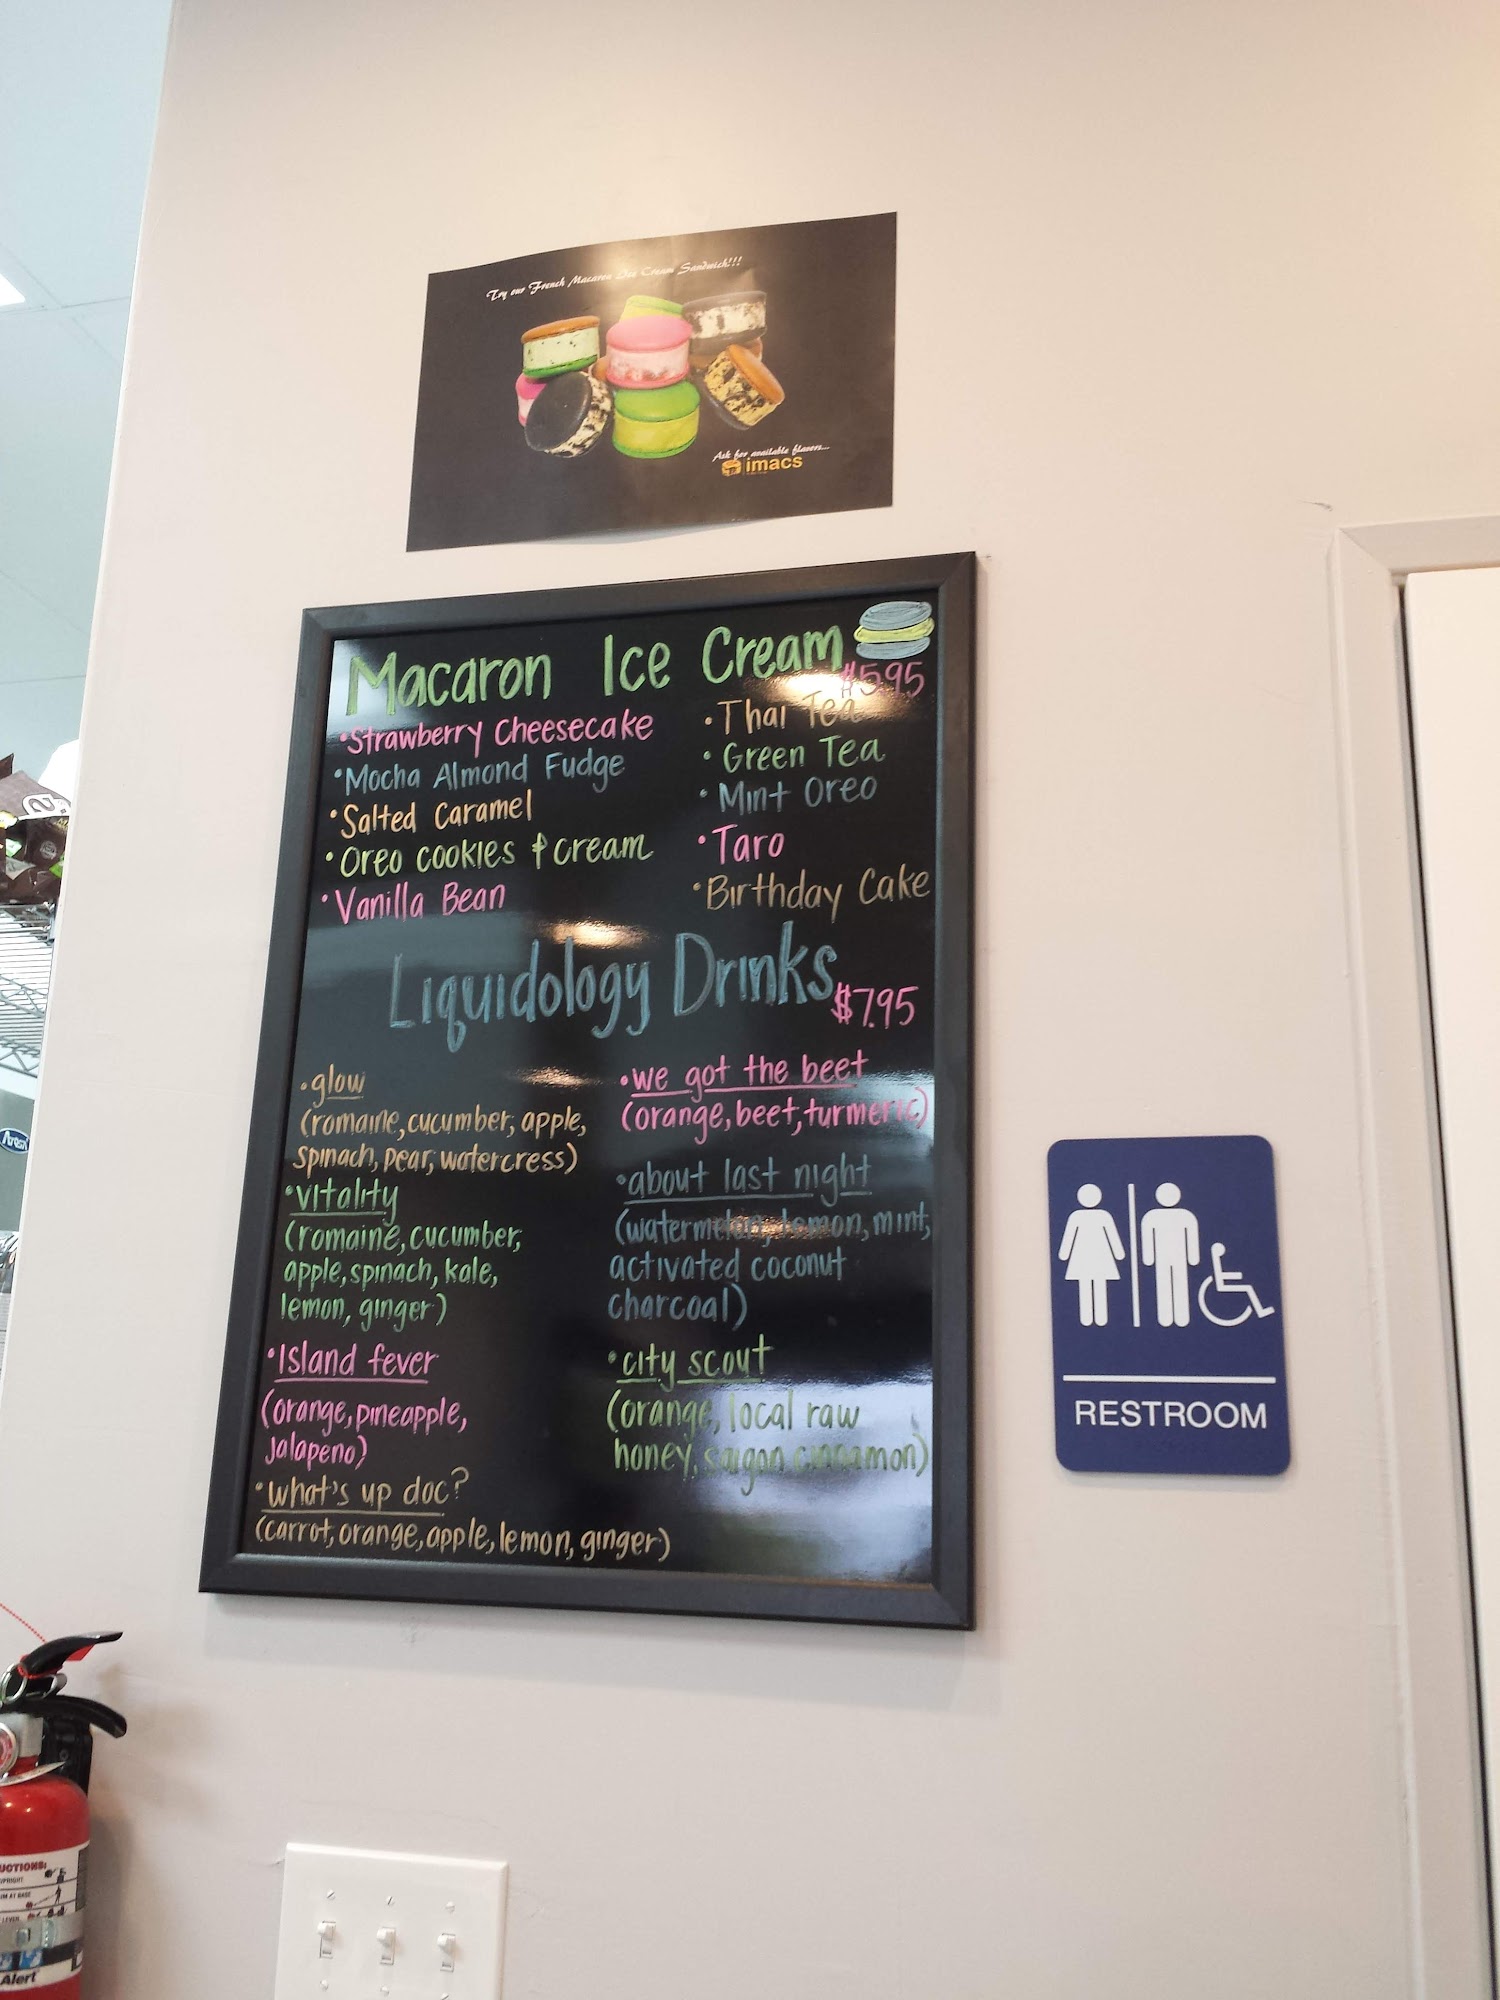 Try our French Macaron Ice Cream Sandwich!!!
Ask for available flavors...
imacs
Macaron Ice Cream
$5.95
•Strawberry Cheesecake
•Mocha Almond Fudge
•Salted Caramel
•Oreo cookies & cream
•Vanilla Bean
•Thai Tea
•Green Tea
•Mint Oreo
•Taro
•Birthday Cake
Liquidology Drinks
$7.95
•glow
(romaine, cucumber, apple,
spinach, pear, watercress)
•vitality
(romaine, cucumber,
apple, spinach, kale,
lemon, ginger)
•Island fever
(orange, pineapple,
jalapeno)
•what's up doc?
(carrot, orange, apple, lemon, ginger)
•we got the beet
(orange, beet, turmeric)
•about last night
(watermelon, lemon, mint,
activated coconut
charcoal)
•city scout
(orange, local raw
honey, saigon cinnamon)
RESTROOM
UCTIONS:
UPRIGHT
IM AT BASE
LEVER
Alert